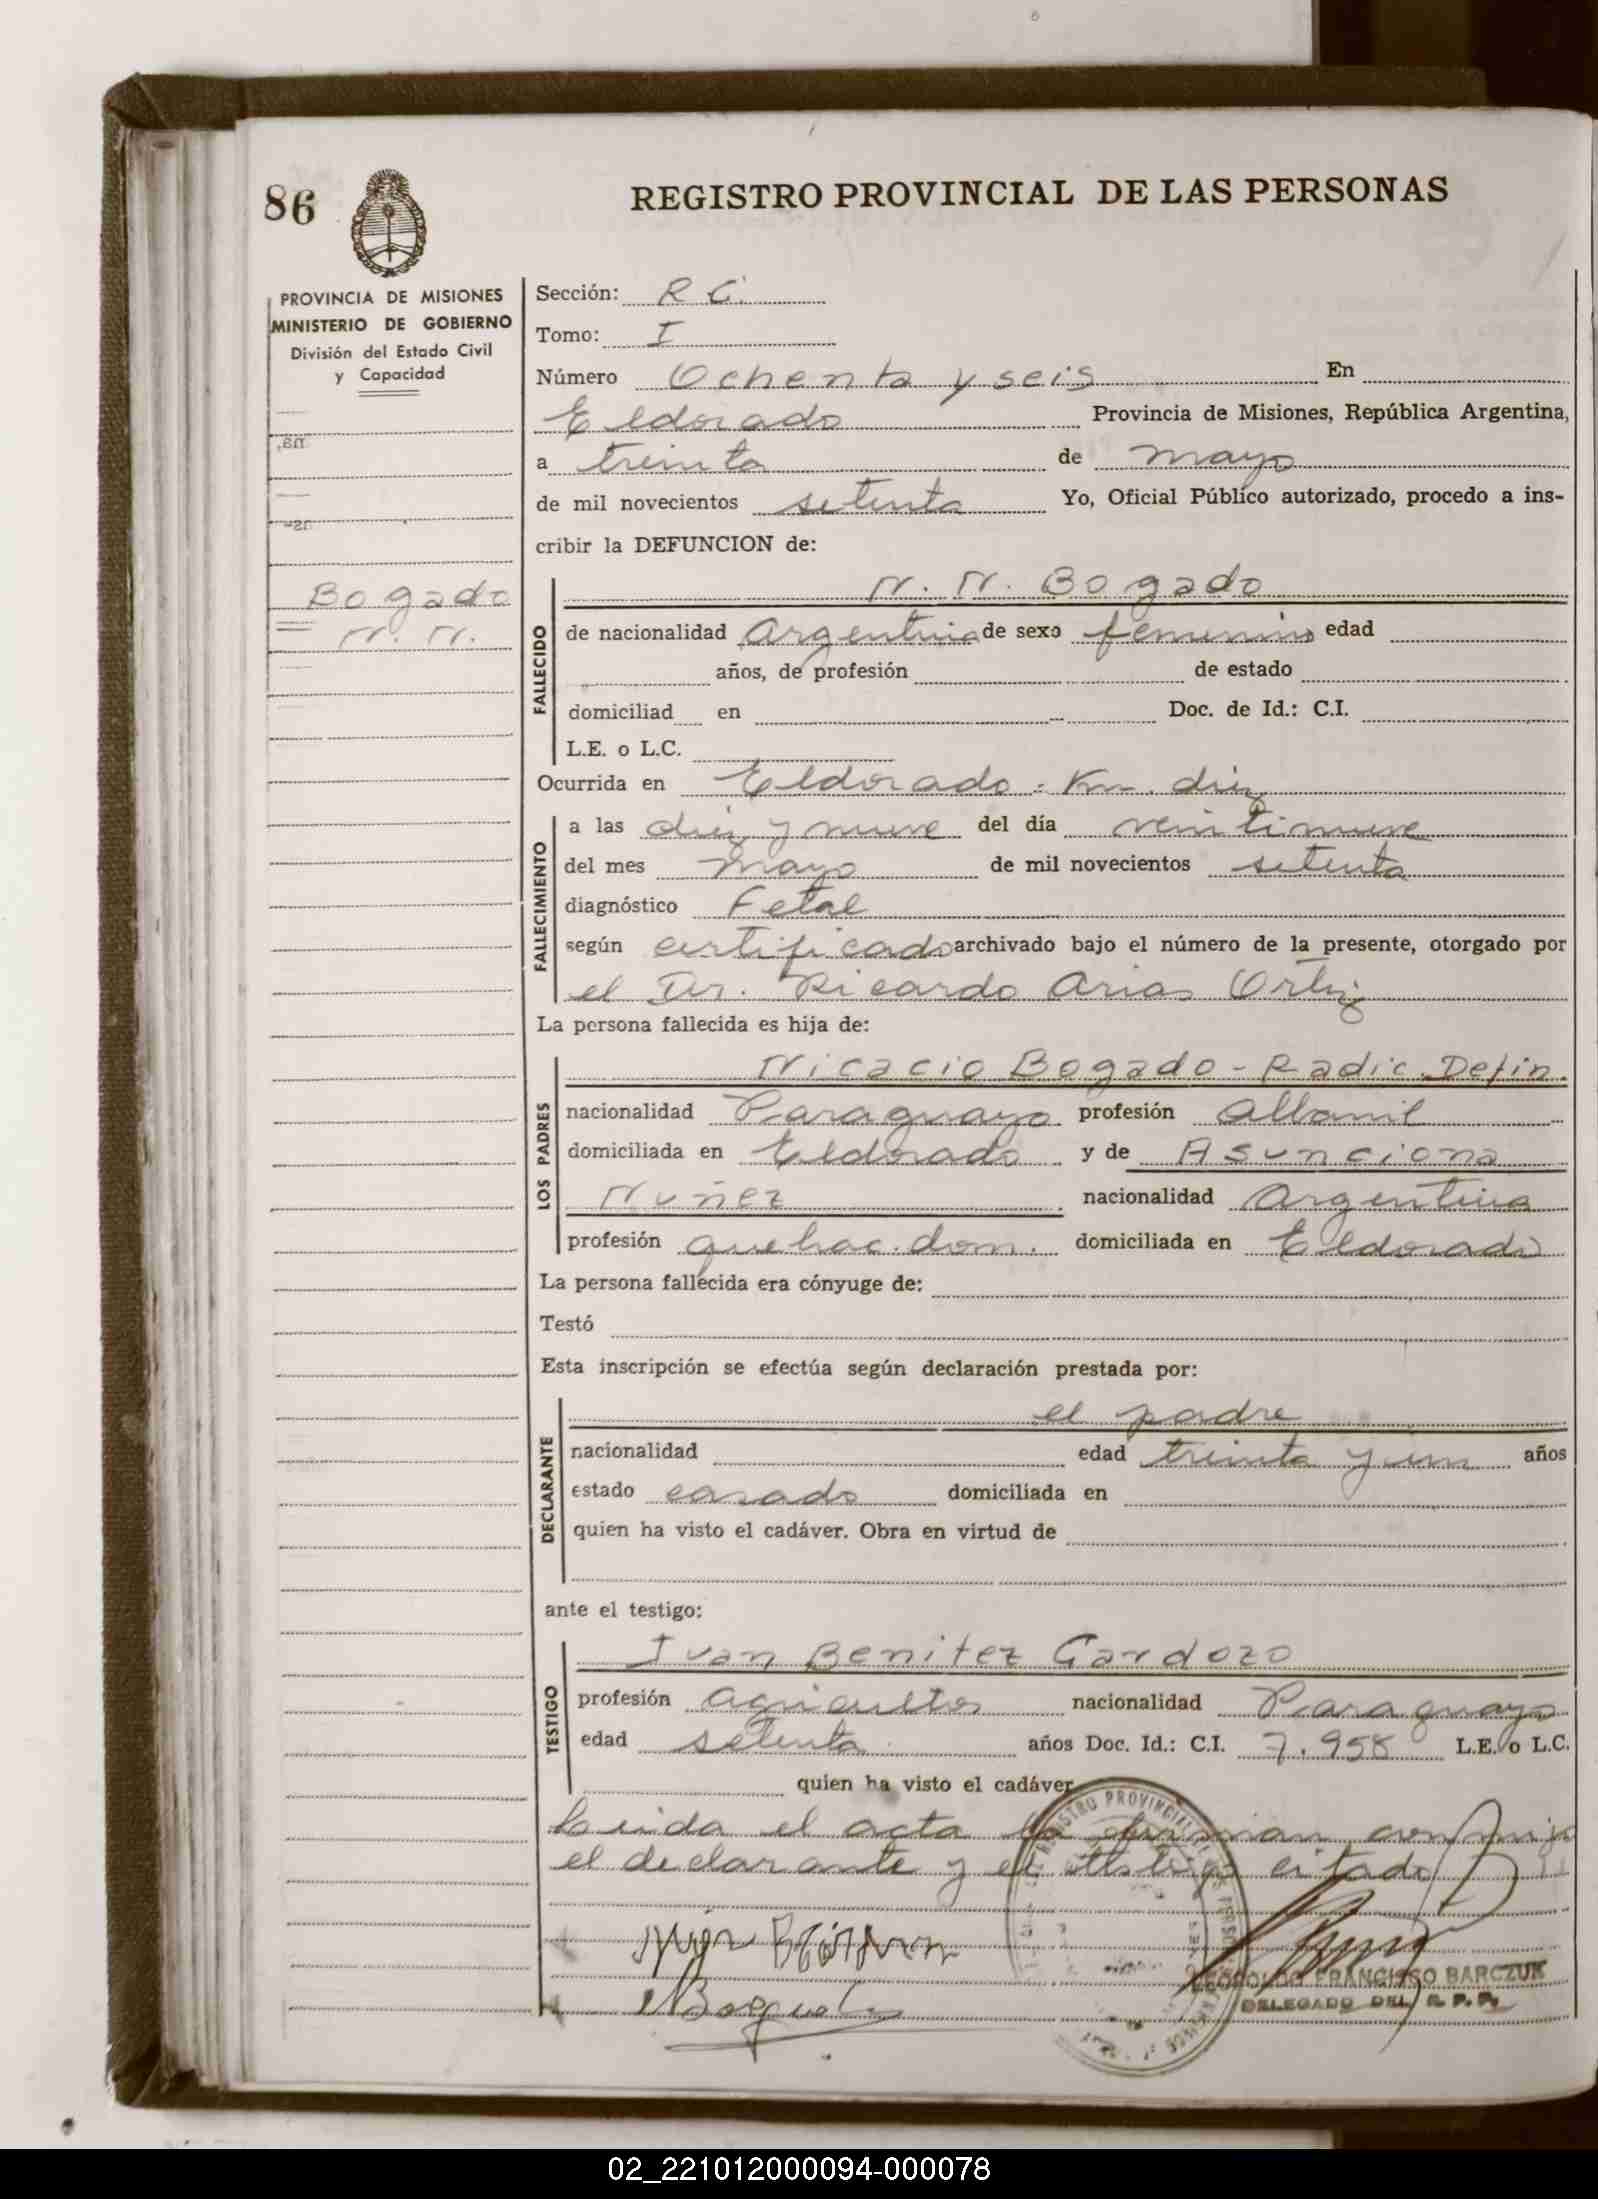 86
REGISTRO PROVINCIAL DE LAS PERSONAS
PROVINCIA DE MISIONES
MINISTERIO DE GOBIERNO
División del Estado Civil
y Capacidad
Bogado
N. N.
Sección: R C.
Tomo: I
Número Ochenta y seis En
Eldorado Provincia de Misiones, República Argentina,
a treinta de mayo
de mil novecientos setenta Yo, Oficial Público autorizado, procedo a ins-
cribir la DEFUNCION de:
FALLECIDO
N. N. Bogado
de nacionalidad Argentina de sexo femenino edad
años, de profesión de estado
domiciliad en Doc. de Id.: C.I.
L.E. o L.C.
Ocurrida en Eldorado - Km. diez
FALLECIMIENTO
a las diez y nueve del día veintinueve
del mes mayo de mil novecientos setenta
diagnóstico Fetal
según certificado archivado bajo el número de la presente, otorgado por
el Dr. Ricardo Arias Ortiz
La persona fallecida es hija de:
LOS PADRES
Nicacio Bogado - Radic. Defin.
nacionalidad Paraguayo profesión Albanil
domiciliada en Eldorado y de Asunciona
Nuñez nacionalidad Argentina
profesión quehac. dom. domiciliada en Eldorado
La persona fallecida era cónyuge de:
Testó
Esta inscripción se efectúa según declaración prestada por:
DECLARANTE
el padre
nacionalidad edad treinta y un años
estado casado domiciliada en
quien ha visto el cadáver. Obra en virtud de
ante el testigo:
TESTIGO
Ivan Benitez Cardozo
profesión agricultor nacionalidad Paraguayo
edad setenta años Doc. Id.: C.I. 7.958 L.E. o L.C.
quien ha visto el cadáver
Leida el acta la firman conmigo
el declarante y el testigo citado
REGISTRO PROVINCIAL DE LAS PERSONAS
LEOPOLDO FRANCISCO BARCZUK
DELEGADO DEL R. P. P.
02_221012000094-000078